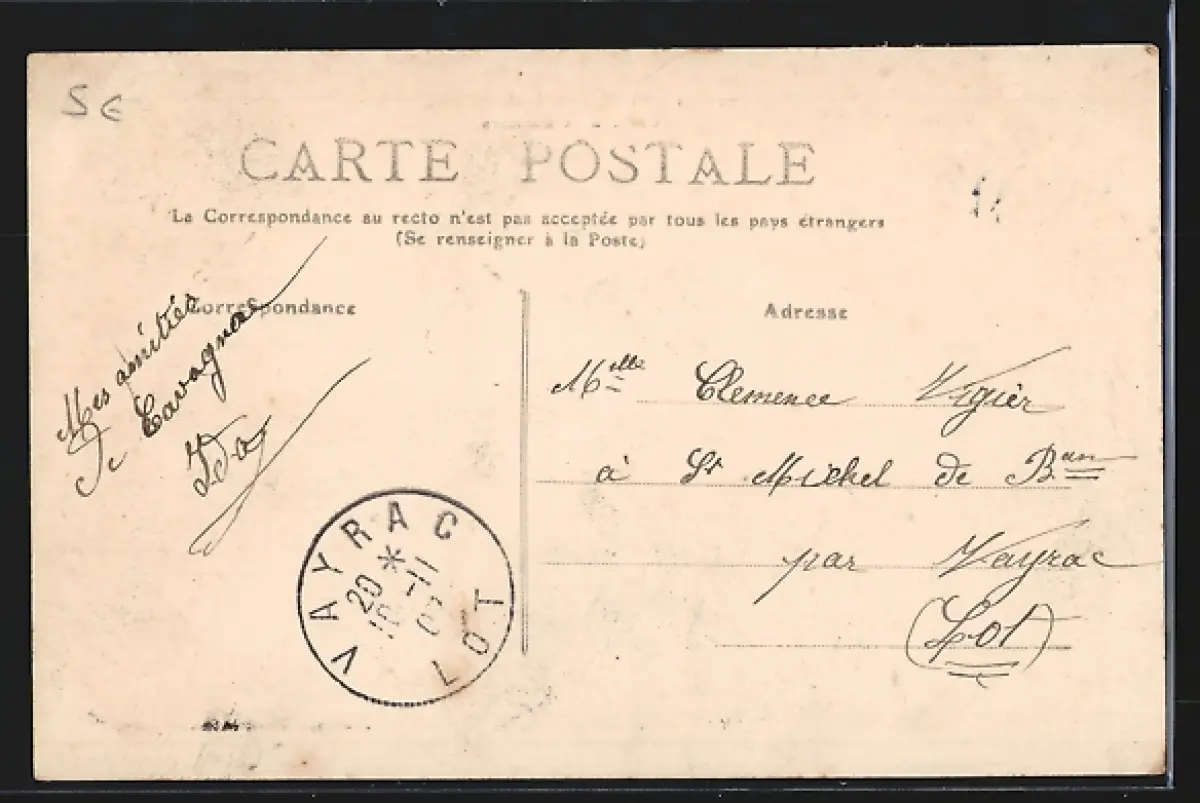 5 €
CARTE POSTALE
La Correspondance au recto n'est pas acceptée par tous les pays étrangers
(Se renseigner à la Poste)
Correspondance
Mes amitiés
de Cavagnac
Ida
Adresse
Melle Clemence Vigier
à St Michel de Ban
par Vayrac
(Lot)
VAYRAC
20 *
10 -11
LOT